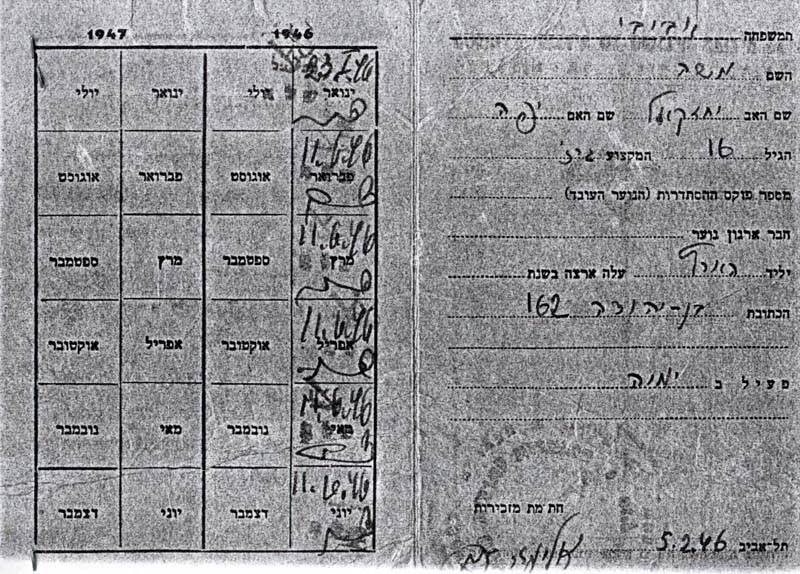 המשפחה
השם משה
שם האב יחזקאל שם האם יפה
הגיל 16 המקצוע
מספר פנקס ההסתדרות (הנוער העובד)
חבר ארגון נוער
יליד הארץ עלה ארצה בשנת
הכתובת בן-יהודה 162
פעיל ב ימיה
חתימת מזכירות
תל-אביב 5.2.46
1946 1947
ינואר יולי ינואר יולי
11.6.46
פברואר אוגוסט פברואר אוגוסט
11.6.46
מרץ ספטמבר מרץ ספטמבר
11.6.46
אפריל אוקטובר אפריל אוקטובר
מאי נובמבר מאי נובמבר
11.6.46
יוני דצמבר יוני דצמבר